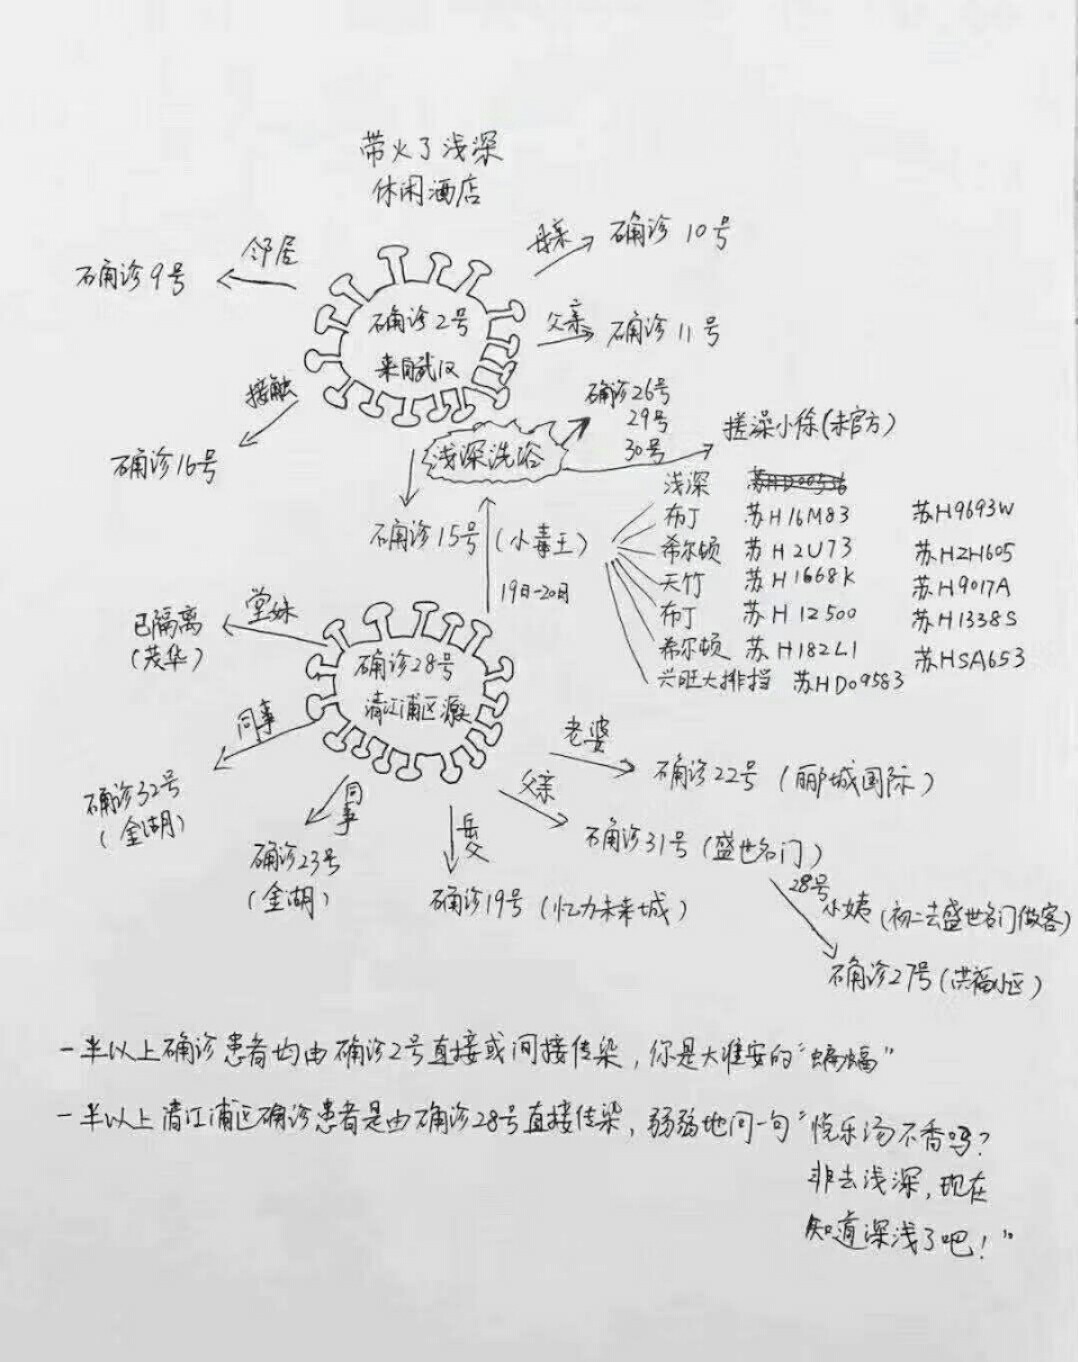 带火了浅深
休闲酒店
邻居
确诊9号
母亲
确诊10号
确诊2号
来自武汉
父亲
确诊11号
接触
确诊16号
浅深洗浴
确诊26号
29号
30号
搓澡小徐(未官方)
确诊15号(小毒王)
19日-20日
浅深
布丁 苏H16M83 苏H9693W
希尔顿 苏H2U73 苏H2H605
天竹 苏H1668K 苏H9017A
布丁 苏H12500 苏H1338S
希尔顿 苏H182L1 苏HSA653
兴旺大排挡 苏HD09583
堂妹
已隔离
(茂华)
确诊28号
清江浦区源头
同事
确诊32号
(金湖)
同事
确诊23号
(金湖)
岳父
确诊19号(忆力未来城)
老婆
确诊22号(郦城国际)
父亲
确诊31号(盛世名门)
28号
小姨(初二去盛世名门做客)
确诊27号(洪福小区)
一半以上确诊患者均由确诊2号直接或间接传染,你是大淮安的“蝙蝠”
一半以上清江浦区确诊患者是由确诊28号直接传染,弱弱地问一句“悦乐汤不香吗?
非去浅深,现在
知道深浅了吧!”